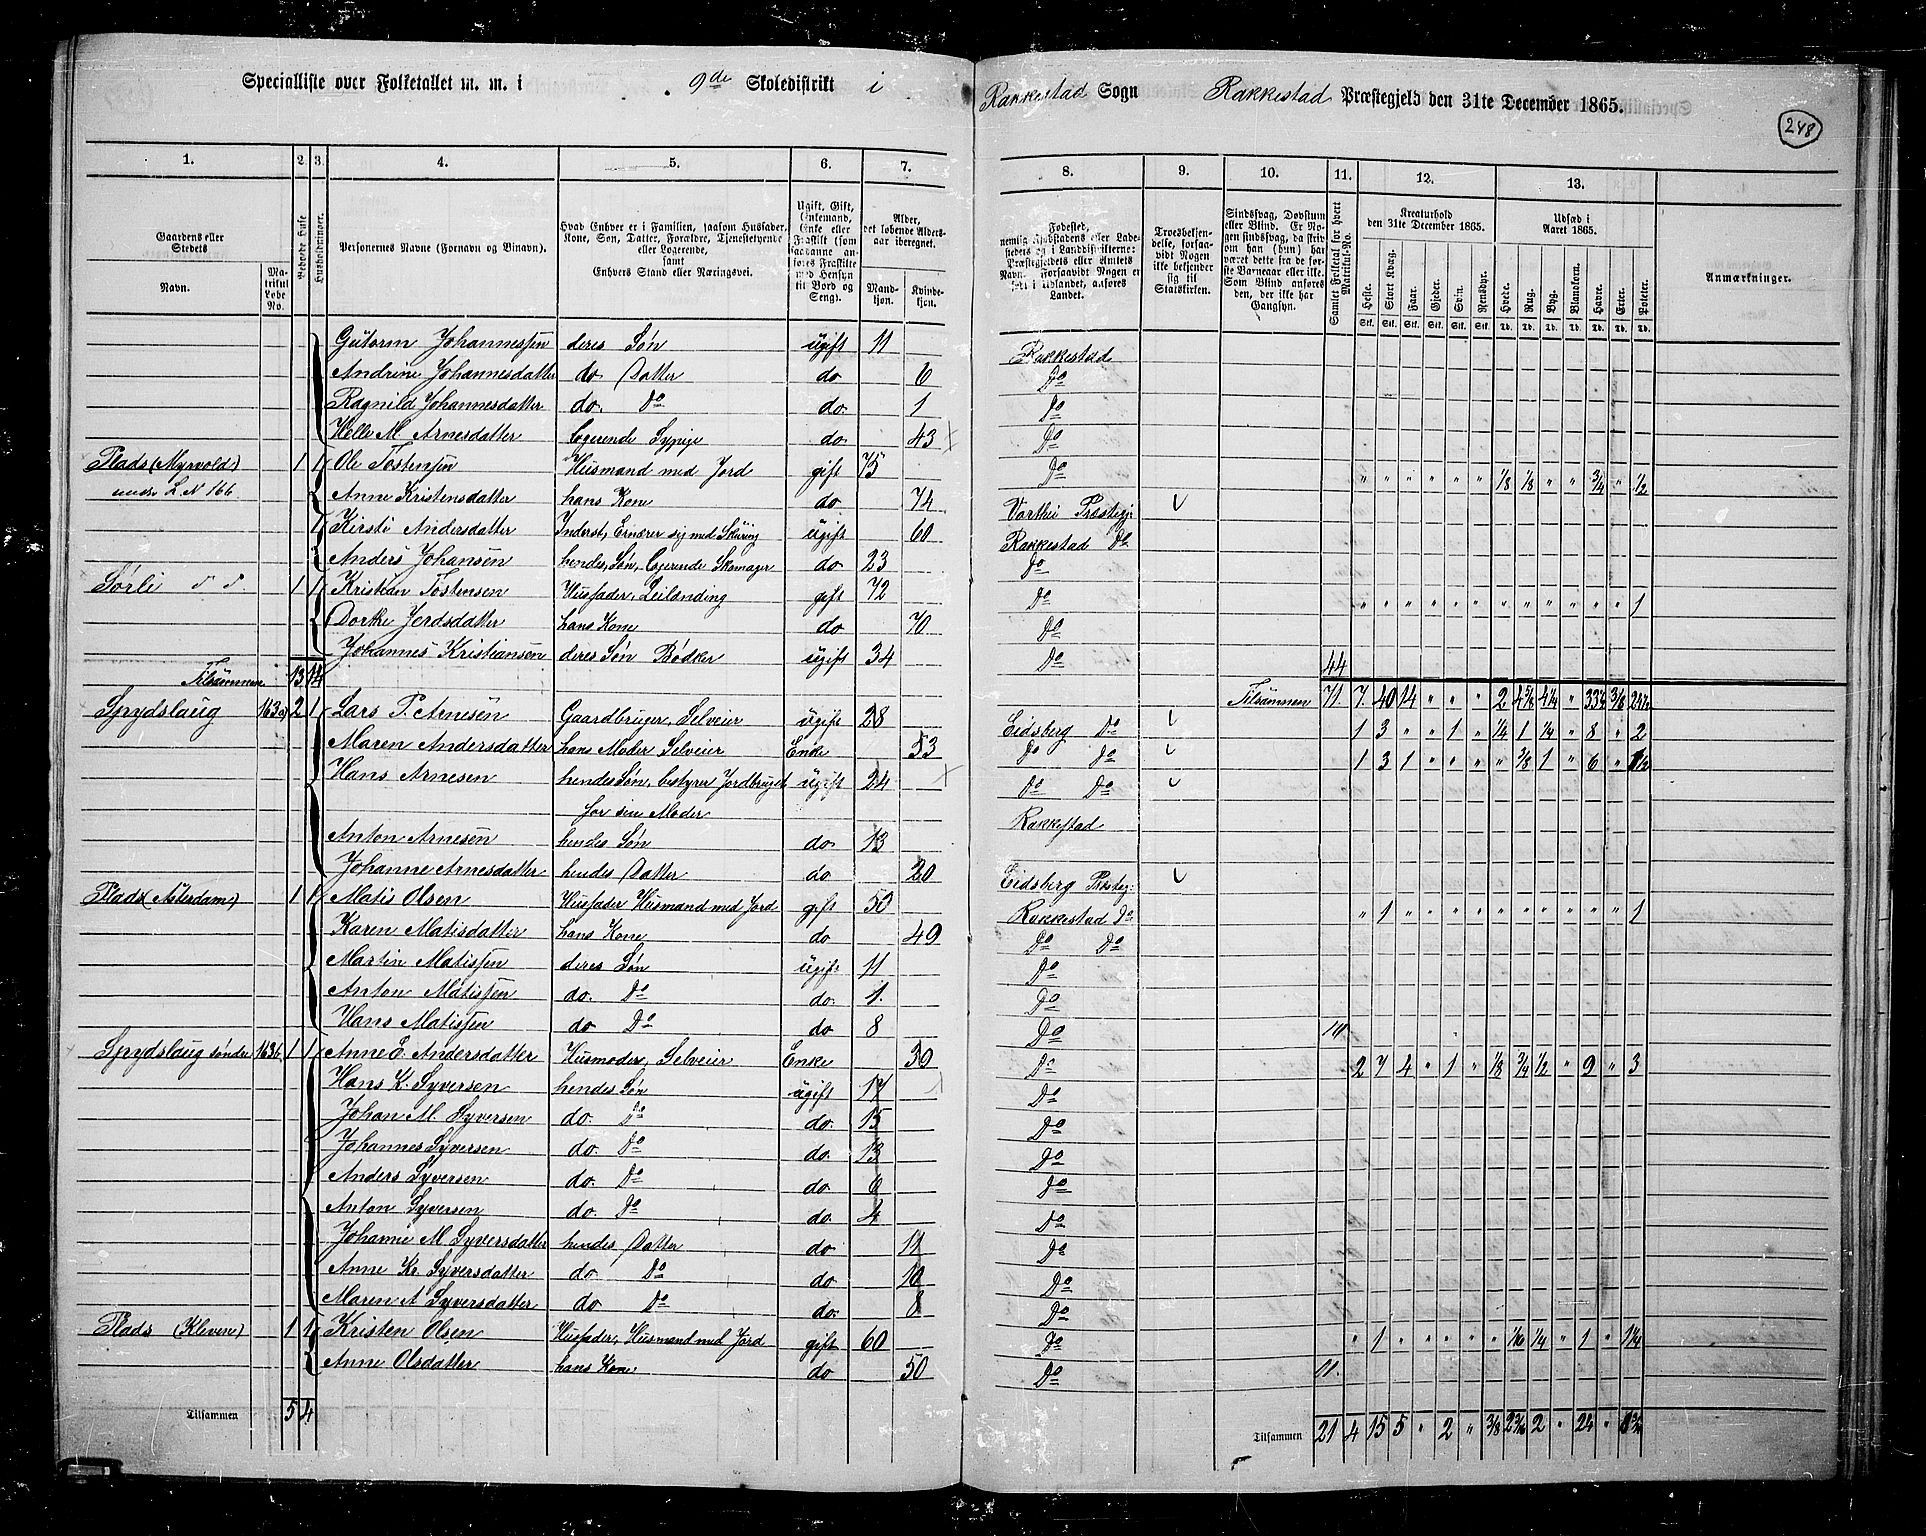 Specialliste over Folketallet m. m. i 9de Skoledistrikt i Rakkestad Sogn Rakkestad Præstegjeld den 31te December 1865.
248
1. 2. 3. 4. 5. 6. 7. 8. 9. 10. 11. 12. 13.
Gaardens eller Stedets Navn. Matrikul Løbe No. Beboede Huse Husholdninger. Personernes Navne (Fornavn og Tilnavn). Hvad Enhver er i Familien, saasom Husfader, Kone, Søn, Datter, Forældre, Tjenestetyende eller Logerende, samt Enhvers Stand eller Næringsvei. Ugift, Gift, Enkemand, Enke eller Fraskilt (som saadanne anføres Fraskilte med Hensyn til Bord og Seng). Alder, det løbende Aldersaar iberegnet. Mandkjøn. Kvindekjøn.
Fødested, Troesbekjendelse, forsaavidt Nogen ikke bekjender sig til Statskirken. Sindssvag, Døvstum eller Blind. Samlet Folketal for hvert Matrikul-No. Kreaturhold den 31te December 1865. Udsæd i Aaret 1865. Anmærkninger.
Heste. Stort Kvæg. Faar. Gjeder. Svin. Rensdyr. Hvede. Rug. Byg. Blandkorn. Havre. Erter. Poteter.
Gutorm Johannessen deres Søn ugift 11 Rakkestad
Andrine Johannesdatter do Datter do 6 Do
Ragnild Johannesdatter do. Do do. 1 Do
Helle M. Arnesdatter logerende Sypige do. 43 Do
Plads (Myrvold) 1 1 Ole Tostensen Husmand med Jord gift 75 Do " " " " " " 1/8 1/8 " " 3/4 " 1/2
under L. N 166. Anne Kristensdatter hans Kone do 74 Præstegj:
1 Kirsti Andersdatter Inderst, Ernærer sig med Skuring ugift 60 Rakkestad Do
Anders Johansen hendes Søn, logerende Skomager do 23 Do
Sørli 1 1 Kristen Tostensen Husfader, Leilænding gift 72 Do " " " " " " " " " " " " 1
Dorthe hans Kone do 70 Do
Johannes Kristiansen deres Søn Bødker ugift 34 Do 44
Tilsammen 13 14 Tilsammen 71. 7. 40 14 " " " 2
Spydslaug 163a 2 1 Lars P. Arnesen Gaardbruger, Selveier ugift 28 Eidsberg Do 1 3 " " 1 " 1/4 1 1/4 " 8 " 2
Maren Andersdatter hans Moder Selveier Enke 53 Do Do 1 3 1 " " " " 3/8 1 " 6 "
Hans Arnesen hendes Søn, bestyrer Jordbruget ugift 24 Do Do
for sin Moder
Anton Arnesen hendes Søn do. 13 Rakkestad
Johanne Arnesdatter hendes Datter do 20 Eidsberg Præsteg:
Plads (Asterdam) 1 1 Matis Olsen Husfader Husmand med Jord gift 50 Rakkestad Do " 1 " " " " " " " " " " 1
Karen Matisdatter hans Kone do 49 Do Do
Martin Matissen deres Søn ugift 11 Do
Anton Matissen do. Do do. 1. Do
Hans Matissen do Do do 8 Do 10
Spydslaug søndre 163b 1 1 Anne E. Andersdatter Husmoder, Selveier Enke 39 Do 2 7 4 " 1 " 1/8 3/4 1/2 " 9 " 3
Hans K. Syversen hendes Søn ugift 17 Do
Johan M. Syversen do. Do do. 15 Do
Johannes Syversen do. Do do. 13 Do
Anders Syversen do. Do do. 6 Do
Anton Syversen do. Do do. 4 Do
Johanne M. Syversdatter hendes Datter do 11 Do
Anne Kr. Syversdatter do Do do 10 Do
Maren A Syversdatter do Do do. 8 Do
Plads (Kleven) 1 1 Kristen Olsen Husfader, Husmand med Jord gift 60 Do " 1 " " " " " 1/16 1/4 " 1 " 1 1/4
Anne Olsdatter hans Kone do 50 Do 11.
Tilsammen 5 4 Tilsammen 21 4 15 5 " 2 " 3/8 2 3/16 2 " 24 "